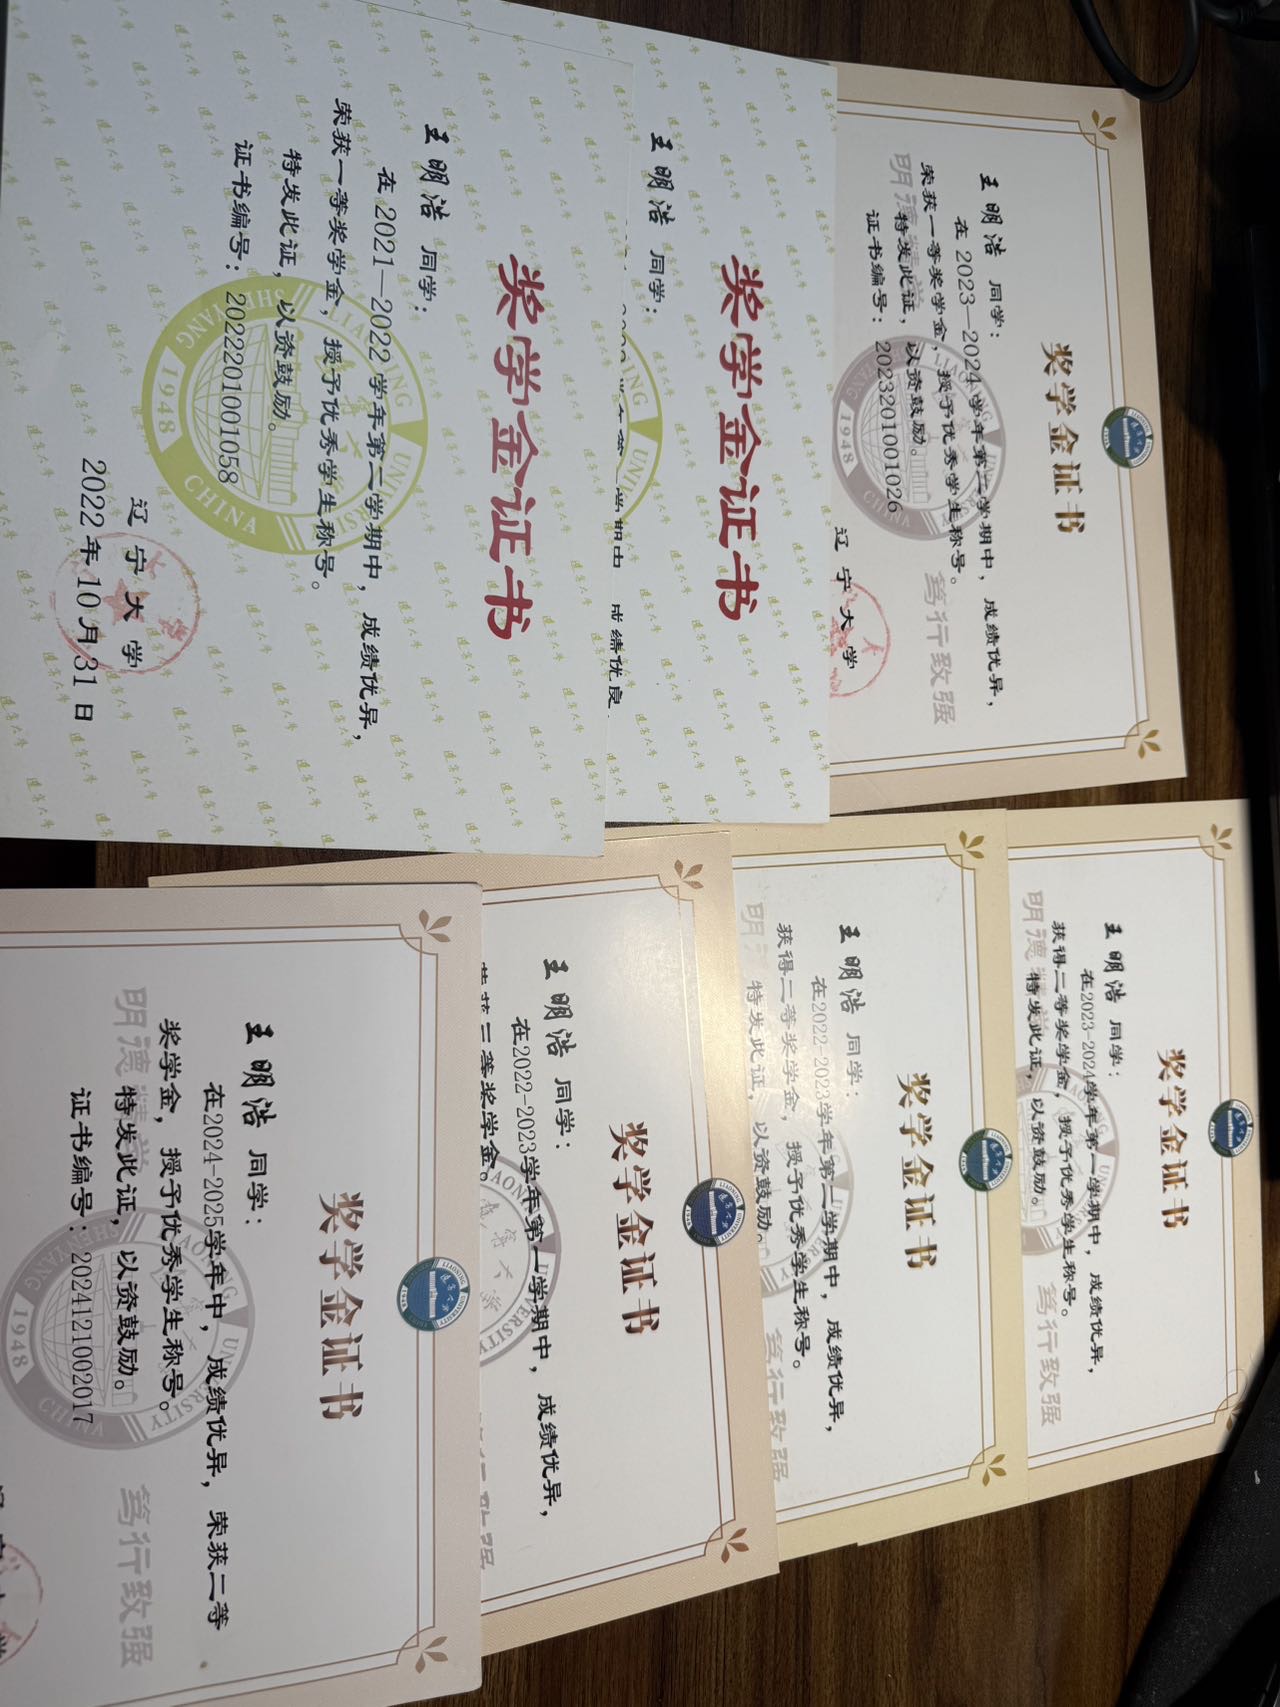 奖学金证书
王明浩 同学:
在2021—2022学年第二学期中,成绩优异,
荣获一等奖学金,授予优秀学生称号。
特发此证,以资鼓励。
证书编号:2022201001058
辽宁大学
2022年10月31日
LIAONING UNIVERSITY
SHENYANG CHINA
1948
奖学金证书
王明浩 同学:
成绩优良
奖学金证书
王明浩 同学:
在2023—2024学年第二学期中,成绩优异,
荣获一等奖学金,授予优秀学生称号。
特发此证,以资鼓励。
证书编号:2023201001026
辽宁大学
明德精学 笃行致强
1948
CHINA
奖学金证书
王明浩 同学:
在2024-2025学年中,成绩优异,荣获二等
奖学金,授予优秀学生称号。
特发此证,以资鼓励。
证书编号:2024121002017
明德精学 笃行致强
SHENYANG CHINA
1948
奖学金证书
王明浩 同学:
在2022-2023学年第一学期中,成绩优异,
荣获二等奖学金。
奖学金证书
王明浩 同学:
在2022-2023学年第二学期中,成绩优异,
获得二等奖学金,授予优秀学生称号。
特发此证,以资鼓励。
笃行致强
奖学金证书
王明浩 同学:
在2023-2024学年第一学期中,成绩优异,
获得二等奖学金,授予优秀学生称号。
特发此证,以资鼓励。
明德精学 笃行致强